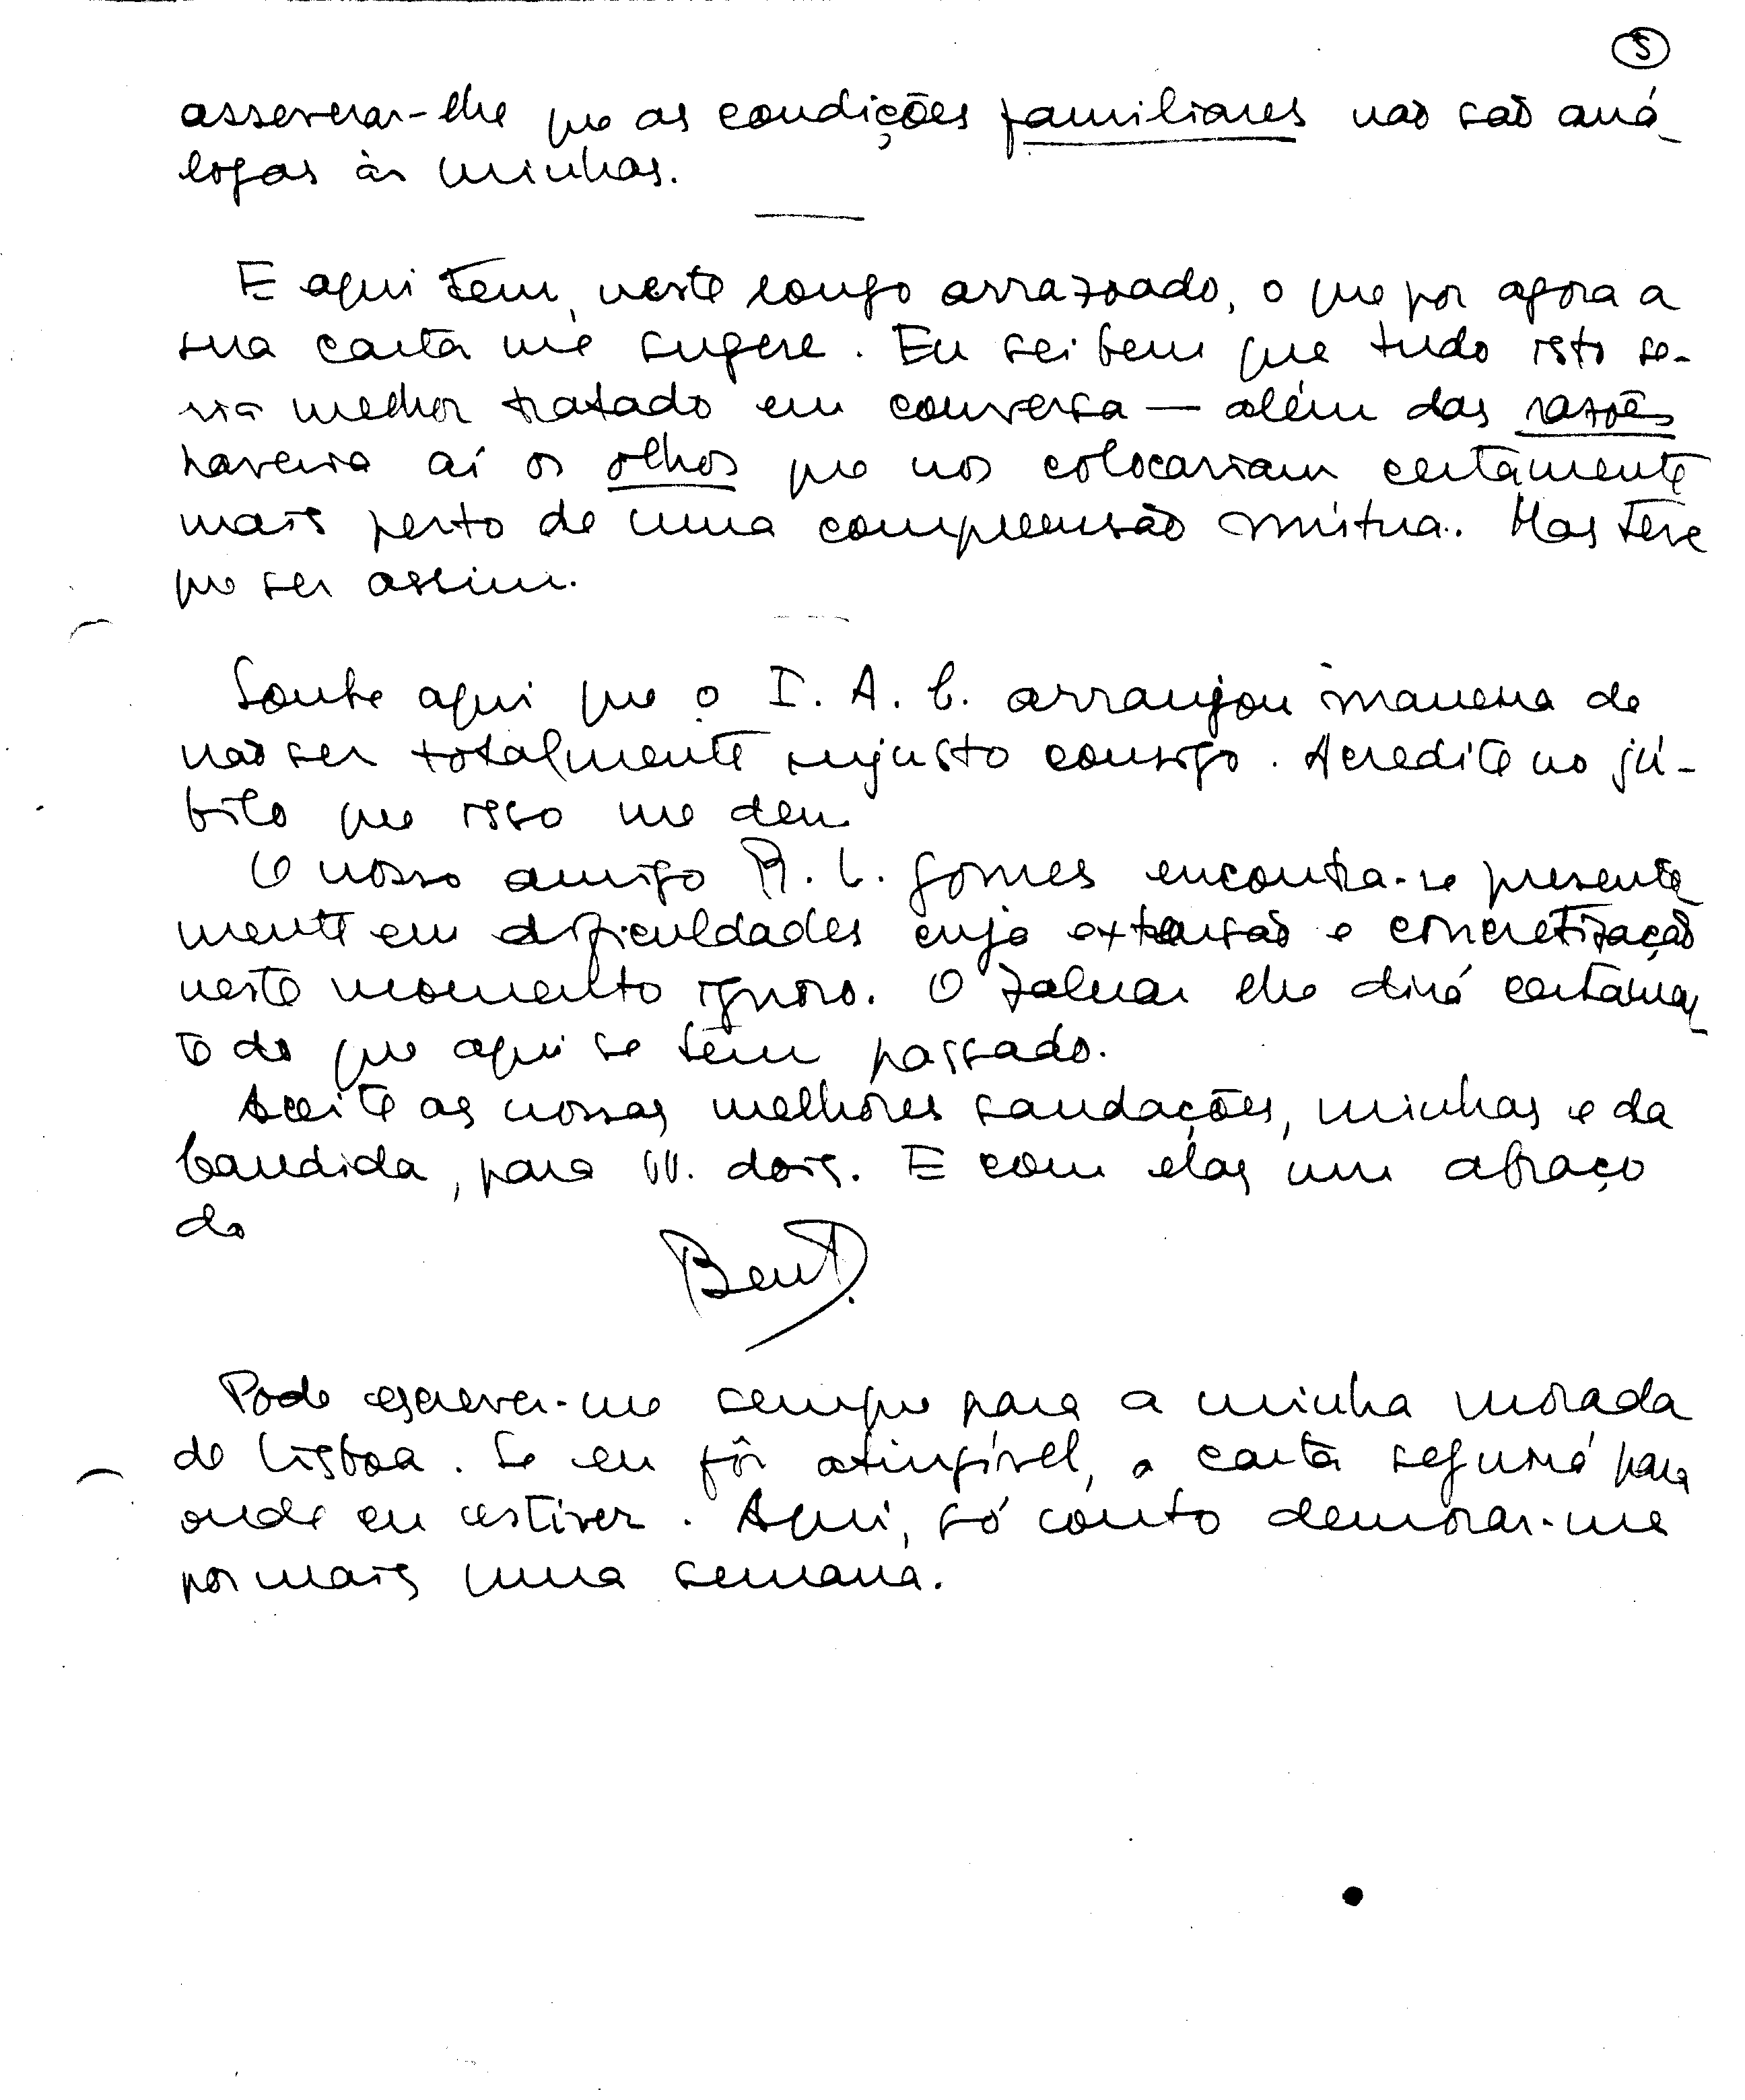 5
asseverar-lhe que as condições familiares não são aná-
logas às minhas.
E aqui tem, neste longo arrazoado, o que por agora a
sua carta me sugere. Eu sei bem que tudo isto se-
ria melhor tratado em conversa — além das razões
haveria aí os olhos que nos colocariam certamente
mais perto de uma compreensão mútua. Mas teve
que ser assim.
Soube aqui que o I. A. C. arranjou maneira de
não ser totalmente injusto consigo. Acredite no jú-
bilo que isso me deu.
O nosso amigo R. L. Gomes encontra-se presente
mente em dificuldades cuja extensão e concretização
neste momento ignoro. O Zaluar lhe dirá certamen
te do que aqui se tem passado.
Aceite as nossas melhores saudações, minhas e da
Candida, para VV. dois. E com elas um abraço
do
Bent.
Pode escrever-me sempre para a minha morada
de Lisboa. Se eu fôr atingível, a carta seguirá para
onde eu estiver. Aqui, só conto demorar-me
por mais uma semana.